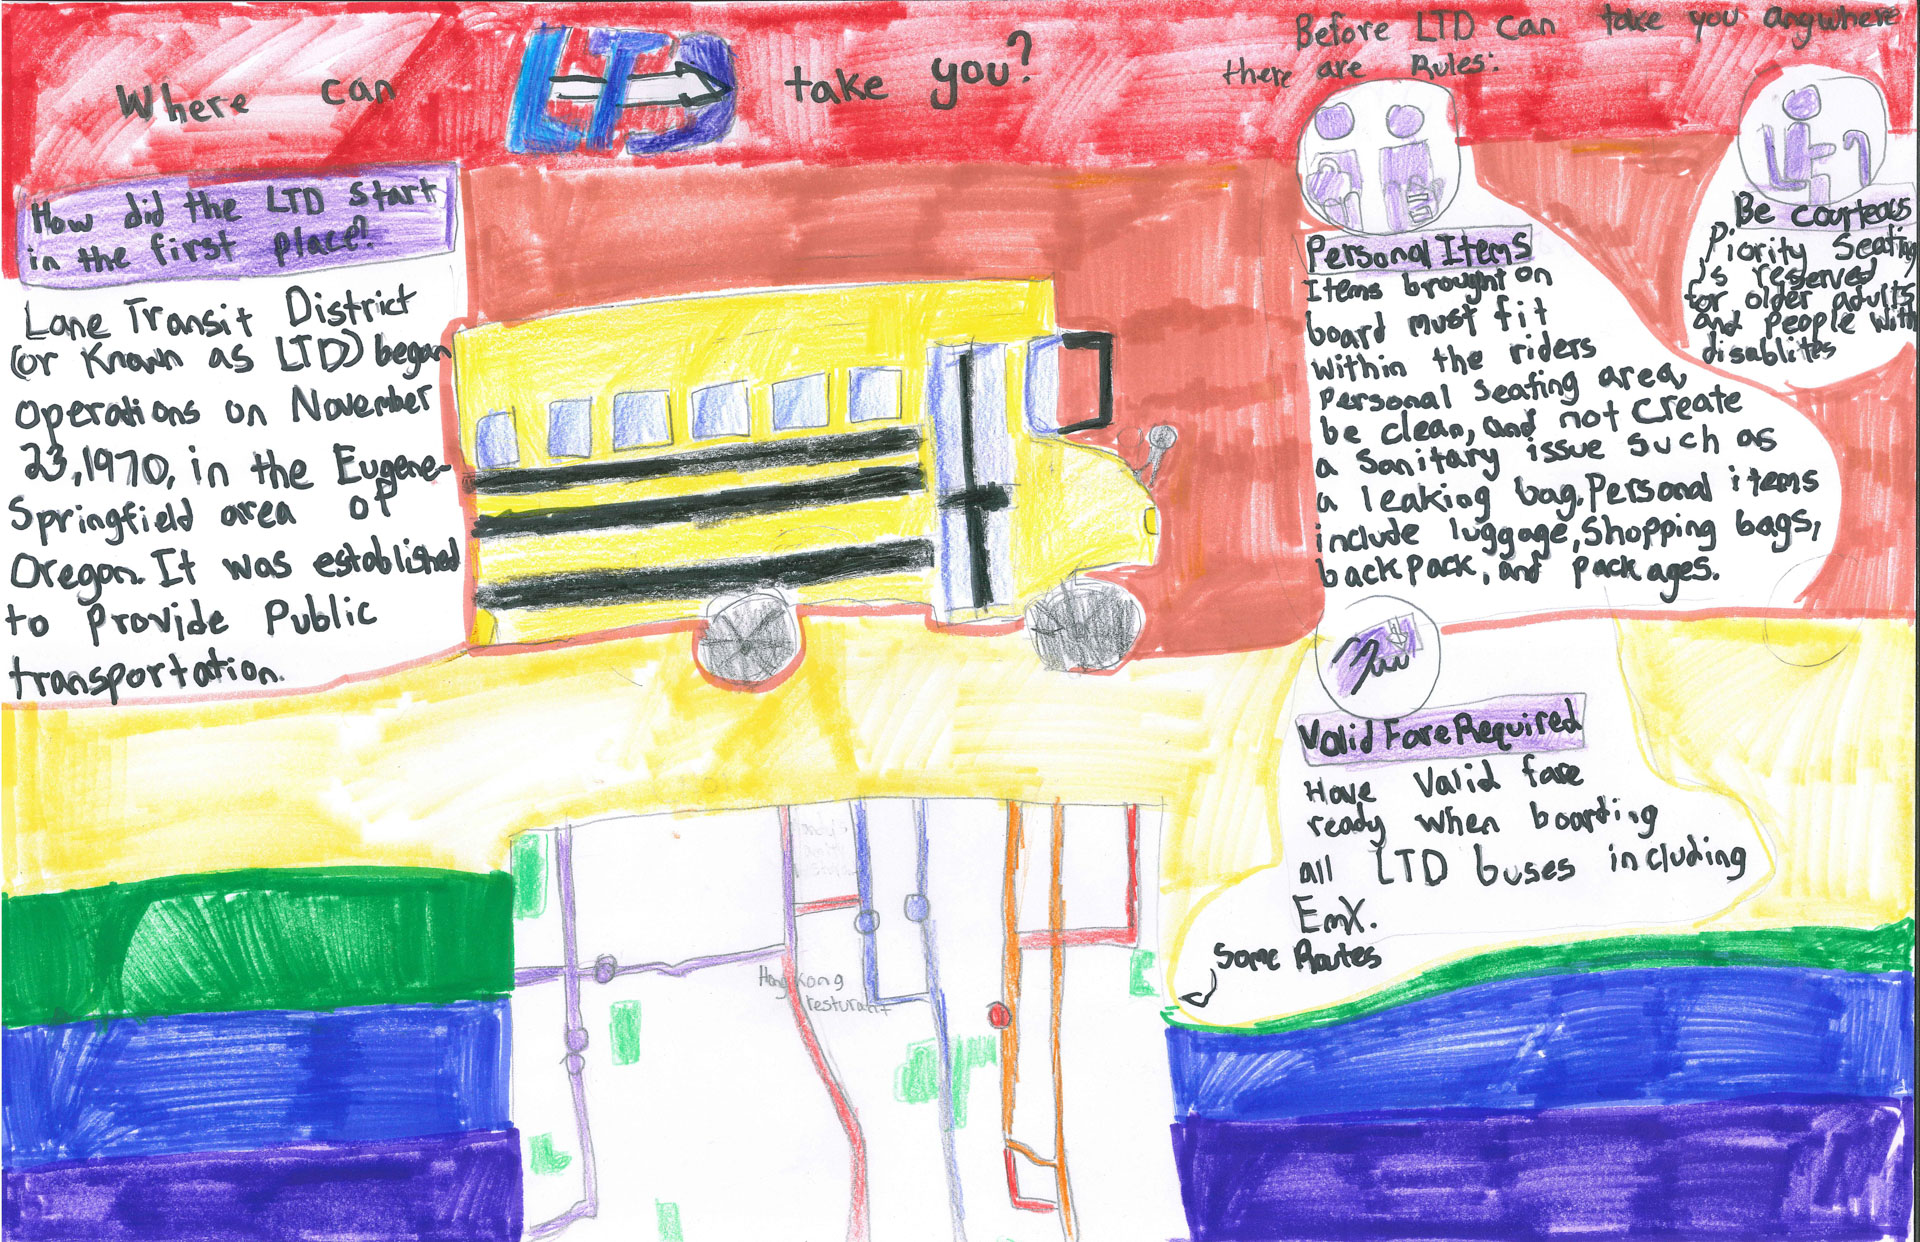 Where can LTD take you?
Before LTD can take you anywhere
there are Rules:
How did the LTD start
in the first place?
Lane Transit District
(or known as LTD) began
Operations on November
23,1970, in the Eugene-
Springfield area of
Oregon. It was established
to Provide Public
transportation.
Personal Items
Items brought on
board must fit
within the riders
Personal seating area,
be clean, and not create
a sanitary issue such as
a leaking bag. Personal items
include luggage, shopping bags,
backpack, and packages.
Be courteous
Piority Seating
is reserved
for older adults
and people with
disablites
Valid Fare Required
Have Valid fare
ready when boarding
all LTD buses including
EmX.
Some Routes
Hong Kong
resturant